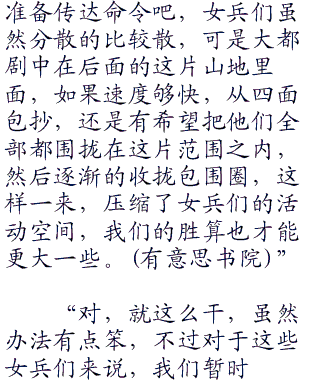 准备传达命令吧，女兵们虽
然分散的比较散，可是大都
剧中在后面的这片山地里
面，如果速度够快，从四面
包抄，还是有希望把他们全
部都围拢在这片范围之内，
然后逐渐的收拢包围圈，这
样一来，压缩了女兵们的活
动空间，我们的胜算也才能
更大一些。(有意思书院)”
“对，就这么干，虽然
办法有点笨，不过对于这些
女兵们来说，我们暂时